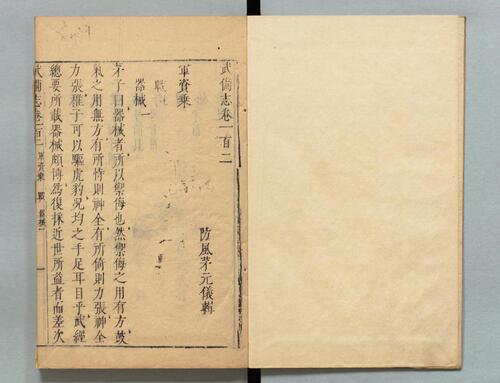 武備志卷一百二
防風茅元儀輯
軍資乗
戰
器械一
茅子曰器械者所以禦侮也然禦侮之用有方鼓
氣之用無方有所恃則神全有所倚則力張神全
力張稚子可以驅虎豹况均之手足耳目乎武經
總要所載器械頗博為復採近世所益者而差次
武備志卷一百二 軍資乗 戰 器械一 一